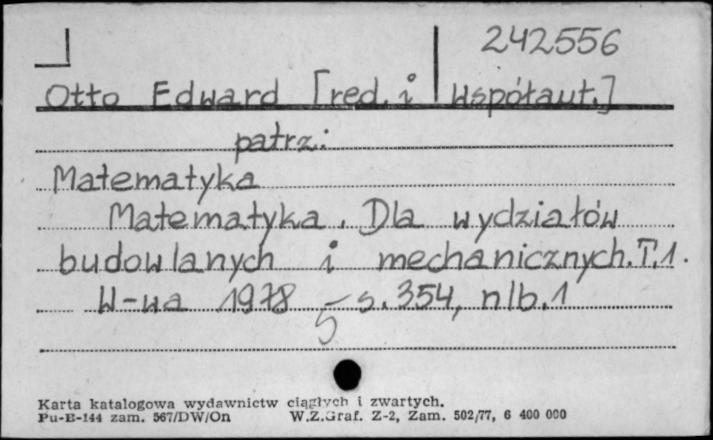 242556
Otto Edward [red. i współaut.]
patrz:
Matematyka
Matematyka. Dla wydziałów
budowlanych i mechanicznych. T. 1.
W-wa 1978 s. 354, nlb. 1
5
Karta katalogowa wydawnictw ciągłych i zwartych.
Pu-B-144 zam. 567/DW/On W.Z.Graf. Z-2, Zam. 502/77, 6 400 000